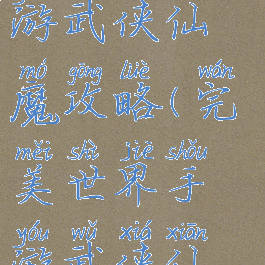 游武侠仙
mó gōng lüè wán
魔攻略(完
měi shì jiè shǒu
美世界手
yóu wǔ xiá xiān
游武侠仙